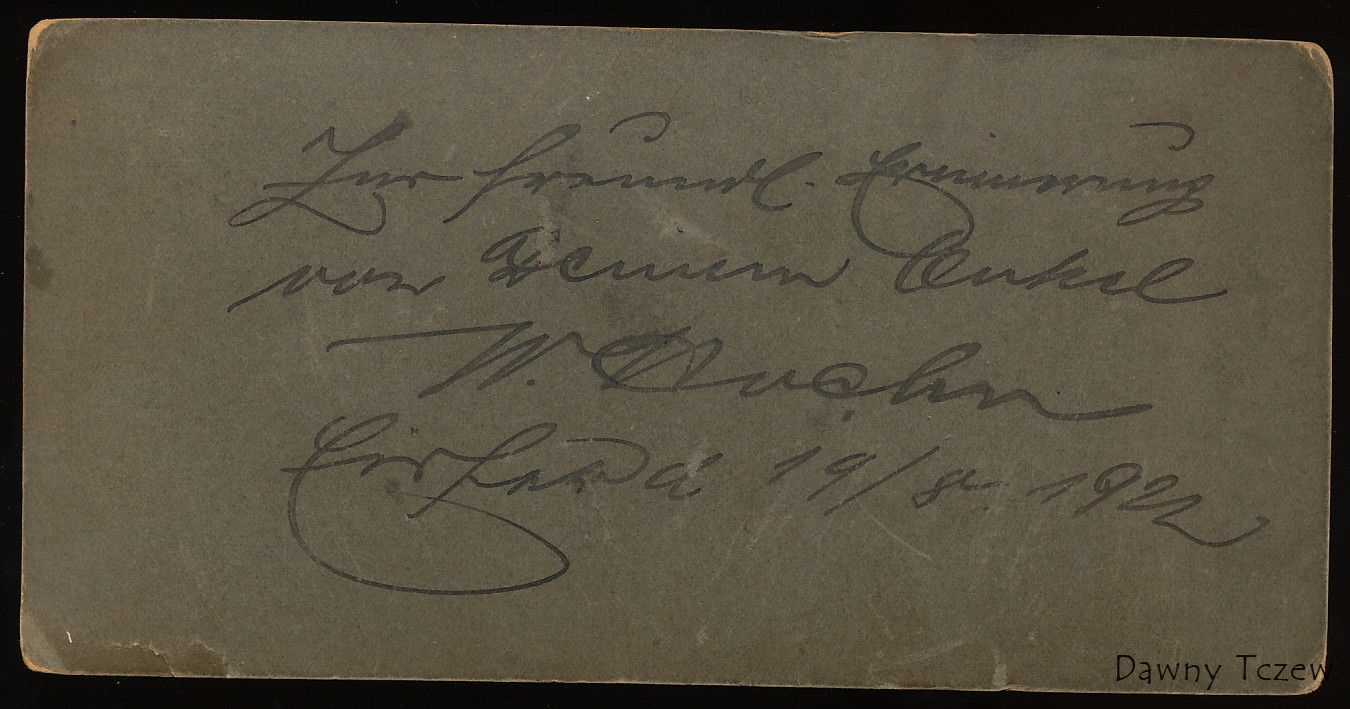 Zur freundl. Erinnerung
von Deinem Onkel
W.
d. 19/8. 1922
Dawny Tczew